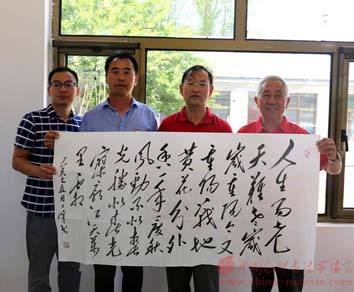 人生易老
天难老岁
岁重阳今又
重阳战地
黄花分外
香一年一度秋
风劲不似春
光胜似春光
寥廓江天万
里霜